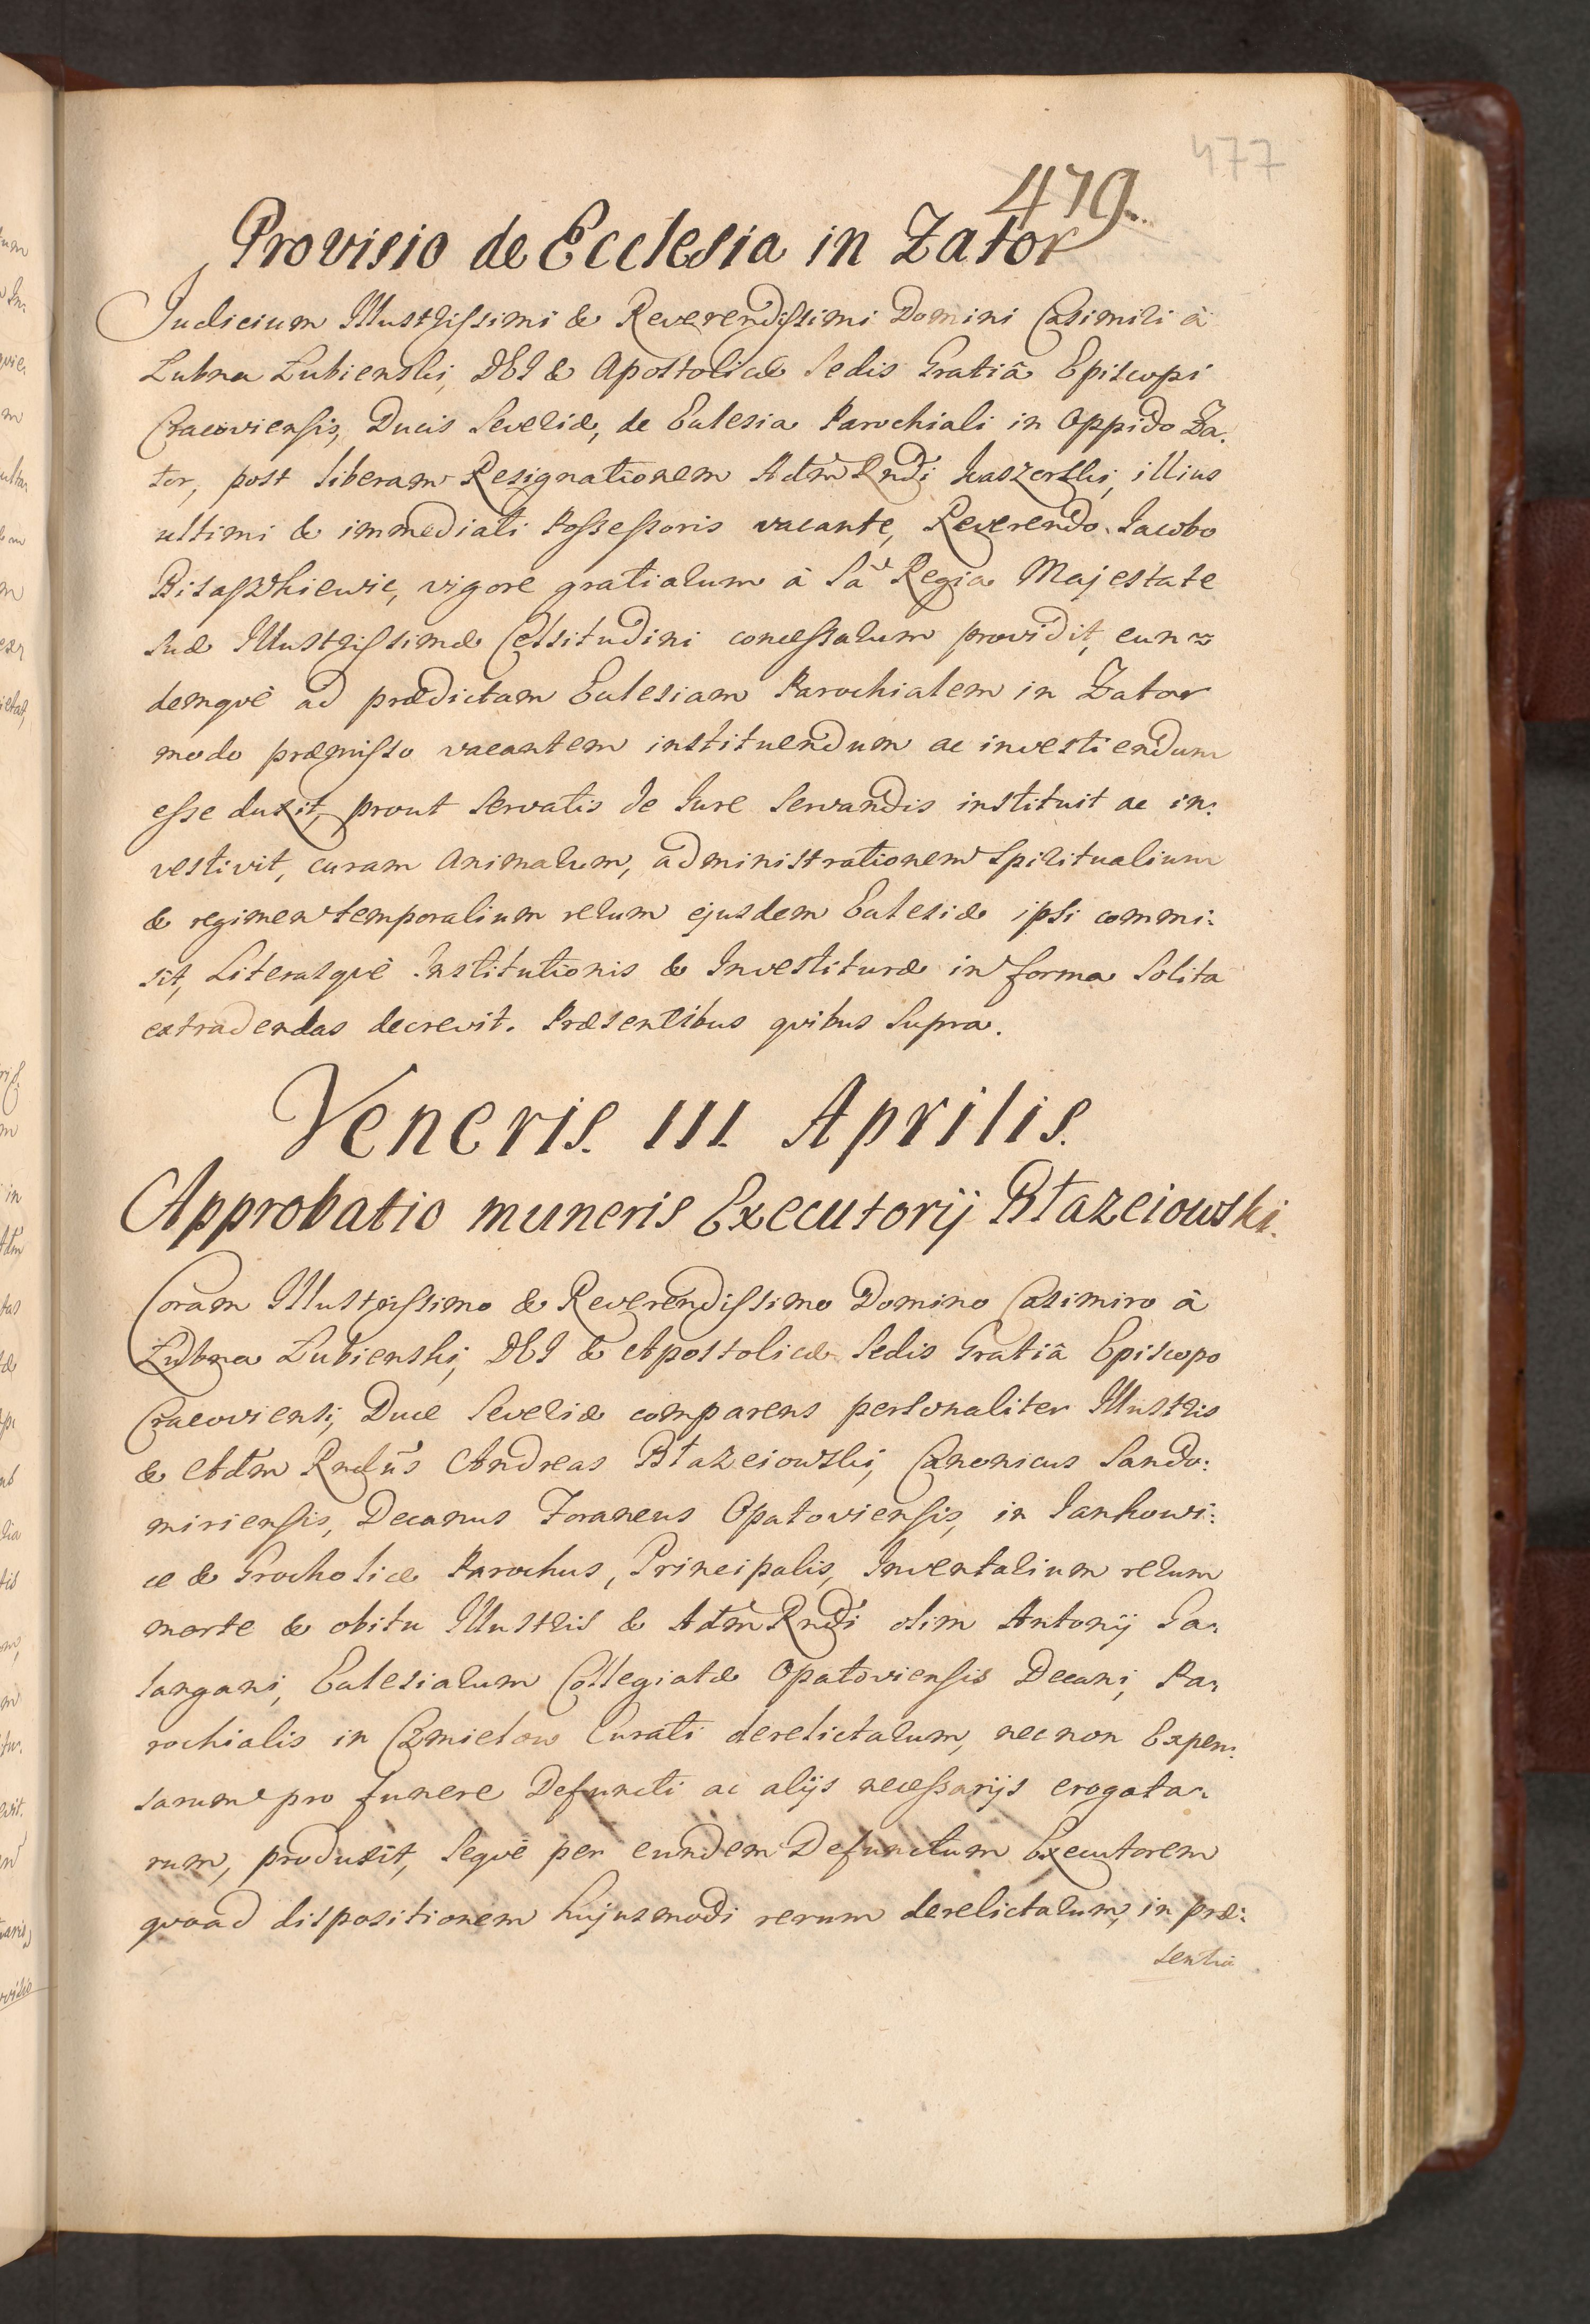 477
479.
Provisio de Ecclesia in Zator
Iudicium Illustrissimi & Reverendissimi Domini Casimiri à
Łubna Łubienski, DEI & Apostolicæ Sedis Gratiâ Episcopi
Cracoviensis, Ducis Severiæ, de Ecclesia Parochiali in Oppido Za:
tor, post liberam Resignationem Adm Rndi Kaszerski, illius
ultimi & immediati Possessoris vacante, Reverendo Iacobo
vigore gratiarum à Sa Regia Majestate
suæ Illustrissimæ Celsitudini concessarum providit, eun
demqvè ad prædictam Ecclesiam Parochialem in Zator
modo præmisso vacantem instituendum ac investiendum
esse duxit, prout servatis de Iure servandis instituit ac in:
vestivit, curam animarum, administrationem Spiritualium
& regimen temporalium rerum ejusdem Ecclesiæ ipsi commi:
sit, Literasqvè Institutionis & Investituræ in forma solita
extradendas decrevit. Præsentibus qvibus supra.
Veneris. III. Aprilis.
Approbatio muneris Executorij Błazeiowski.
Coram Illustrissimo & Reverendissimo Domino Casimiro à
Łubna Łubienski, DEI & Apostolicæ Sedis Gratiâ Episcopo
Cracoviensi, Duce Severiæ comparens personaliter Illustris
& Adm Rndus Andreas Błazeiowski, Canonicus Sando:
miriensis, Decanus Foraneus Opatoviensis, in Iankowi:
ce & Grocholice Parochus, Principalis, Inventarium rerum
morte & obitu Illustris & Adm Rndi olim Antonij Sa:
langani, Ecclesiarum Collegiatæ Opatoviensis Decani, Pa:
rochialis in Czmielow Curati derelictarum, nec non Expen:
sarum pro funere Defuncti ac alijs necessarijs erogata:
rum, produxit, seqvè per eundem Defunctum Executorem
qvoad dispositionem hujusmodi rerum derelictarum, in præ:
sentiâ